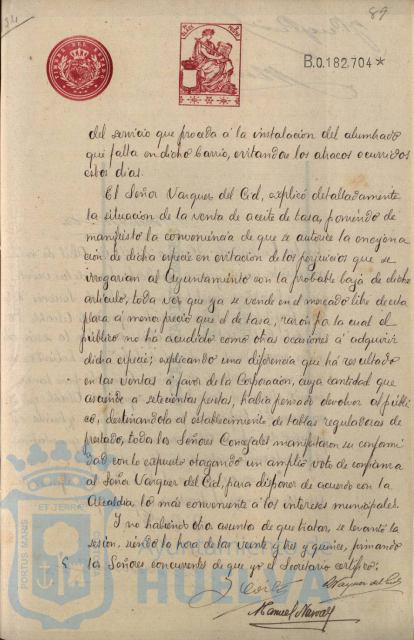 89
B.0.182.704*
TIMBRE DEL ESTADO
del servicio que proceda á la instalación del alumbrado
que falta en dicho barrio, evitandose los atracos ocurridos
estos dias.
El Señor Vazquez del Cid, explicó detalladamente
la situación de la venta de aceite de tasa, poniendo de
manifiesto la conveniencia de que se autorice la enagena
ción de dicha especie en evitación de los perjuicios que se
irrogarian al Ayuntamiento con la probable baja de dicho
articulo, toda vez que ya se vende en el mercado libre de esta
plaza á menor precio que el de tasa, razón por la cual el
público no há acudido como otras ocasiones á adquirir
dicha especie; explicando una diferencia que há resultado
en las ventas á favor de la Corporación, cuya cantidad que
asciende á setecientas pesetas, habia pensado devolver al públi
co, destinandola al establecimiento de tablas reguladoras de
pescado, todos los Señores Concejales manifestaron su conformi
dad con lo expuesto otorgando un amplio voto de confianza
al Señor Vazquez del Cid, para disponer de acuerdo con la
Alcaldia, lo más conveniente á los intereses municipales.
Y no habiendo otro asunto de que tratar, se levantó la
sesión, siendo la hora de las veinte y tres y quince, firmando
los Señores concurrentes de que yo el Secretario certifico:
Vazquez del Cid
Manuel
PORTUS MARIS ET TERRÆ
HUELVA